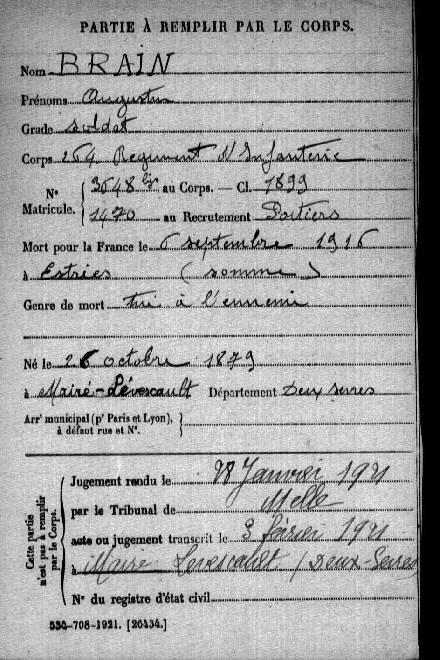 PARTIE À REMPLIR PAR LE CORPS.
Nom BRAIN
Prénoms Augustin
Grade soldat
Corps 264 Régiment d'Infanterie
N° Matricule. 3648 bis au Corps. — Cl. 1899
1470 au Recrutement Poitiers
Mort pour la France le 6 septembre 1916
à Estries (somme)
Genre de mort tué à l'ennemi
Né le 26 octobre 1879
à Mairé-Lévescault Département Deux sevres
Arr' municipal (p' Paris et Lyon),
à défaut rue et N°.
Cette partie n'est pas à remplir par le Corps.
Jugement rendu le 28 Janvier 1921
par le Tribunal de Melle
acte ou jugement transcrit le 3 février 1921
à Mairé Levescault (Deux-Sèvres
N° du registre d'état civil
534-708-1921. [26434.]